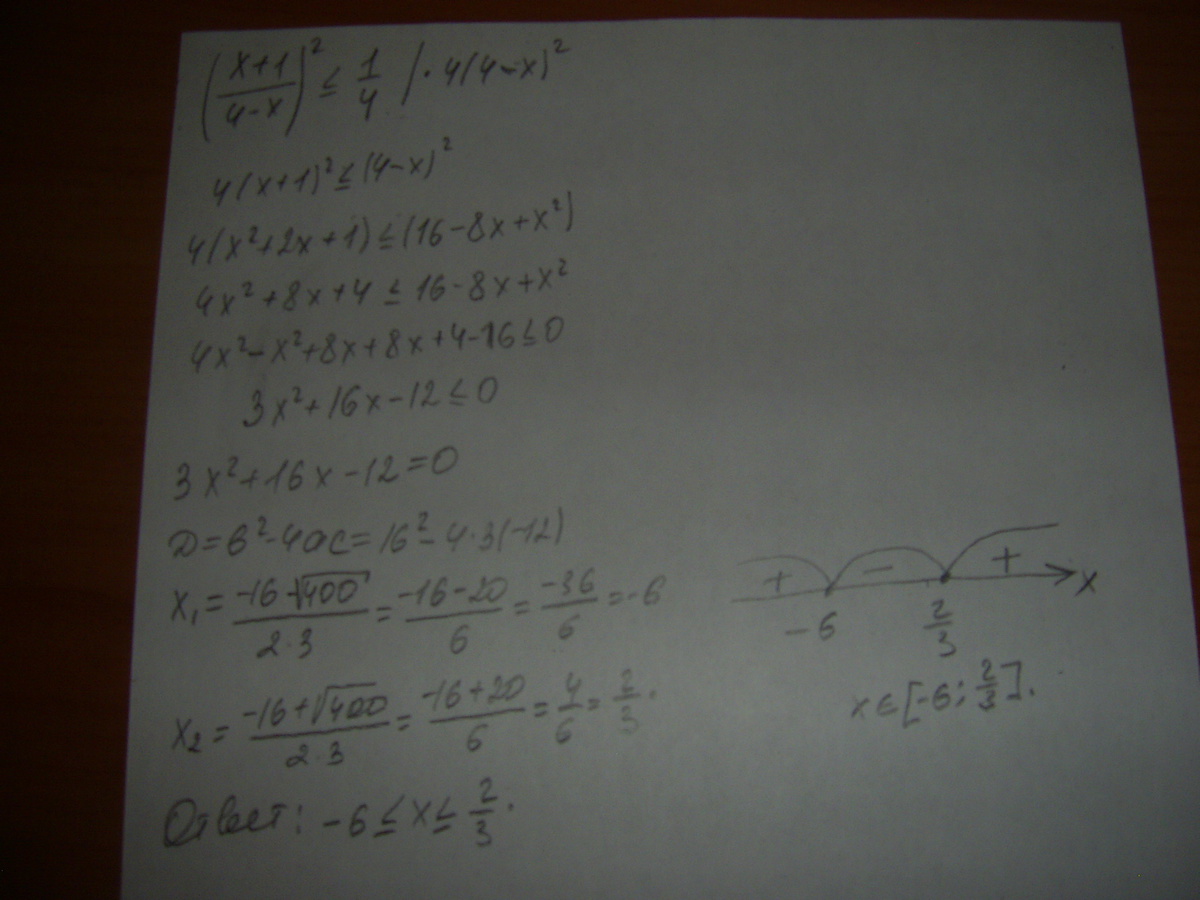 (x+1/4-x)² ≤ 1/4 /· 4(4-x)²
4(x+1)² ≤ (4-x)²
4(x²+2x+1) ≤ (16-8x+x²)
4x²+8x+4 ≤ 16-8x+x²
4x²-x²+8x+8x+4-16 ≤ 0
3x²+16x-12 ≤ 0
3x²+16x-12=0
D=b²-4ac=16²-4·3(-12)
x₁ = -16-√400/2·3 = -16-20/6 = -36/6 = -6
x₂ = -16+√400/2·3 = -16+20/6 = 4/6 = 2/3.
Ответ: -6 ≤ x ≤ 2/3.
+ - + x
-6 2/3
x∈[-6; 2/3].